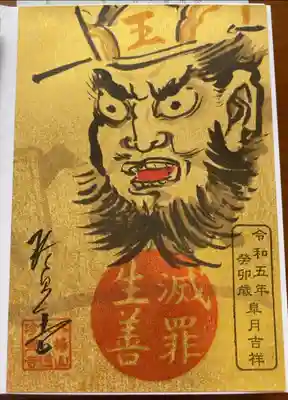 王
滅罪
生善
令和五年
癸卯歳 皐月吉祥